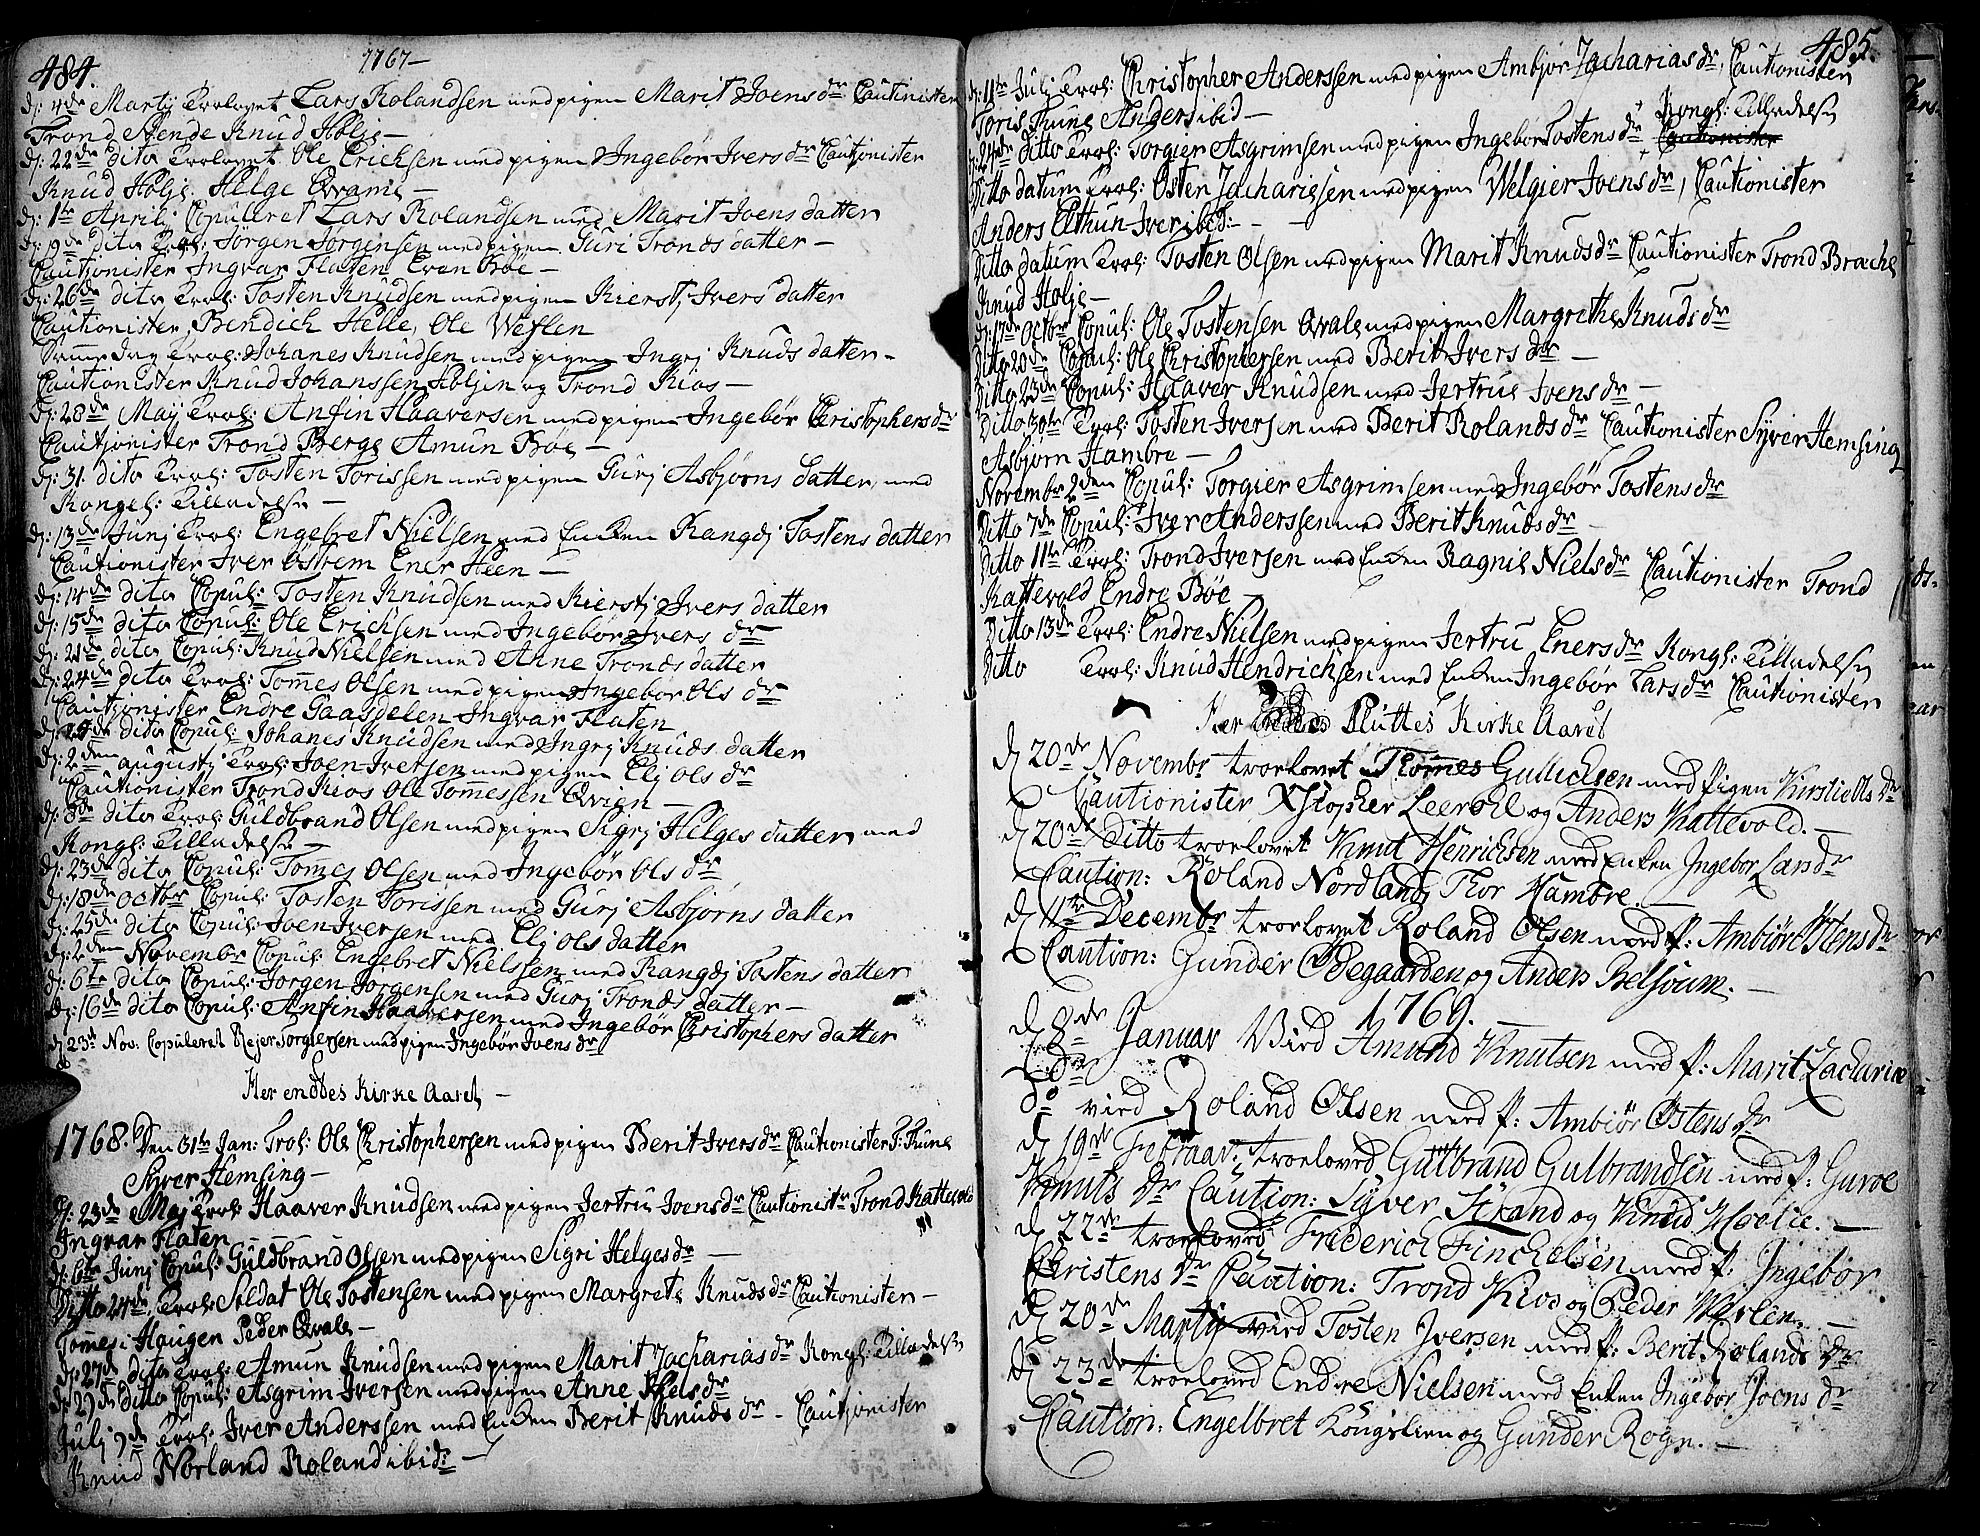 484.
1767—
d: 4de Martij Trolovet Lars Rolandsen med pigen Marit Joens dr Cautionister
Trond Nende Knud Holje—
d: 22de dito Trolovet Ole Erichsen med pigen Ingebør Ivers dr Cautionister
Knud Holje, Helge Qvame—
d: 1te Aprilj Copuleret Lars Rolandsen med Marit Joens datter
d: 9de dito Trol: Jørgen Jørgensen med pigen Guri Tronds datter—
Cautionister Ingvar Flaten Even Bøe—
d: 26de dito Trol: Tosten Knudsen med pigen Kierstj Ivers datter
Cautionister, Bendich Helle, Ole Weflen
Samme dag Trol: Johanes Knudsen med pigen Ingrj Knuds datter—
Cautionister Knud Johanssen Holjen og Trond Kios—
d: 28de Maij Trol: Anfin Haaversen med pigen Ingebør Christophers dr
Cautionister Trond Berge Amun Bøe—
d: 31. dito Trol: Tosten Torissen med pigen Gurj Asbjørns datter, med
Kongel: Tilladelse—
d: 13de Junj Trol: Engebret Nielsen med Enken Rangdj Tostens datter
Cautionister Iver Østrem Ener Heen—
d: 14de dito Copul: Tosten Knudsen med Kierstj Ivers datter
d: 15de dito Copul: Ole Erichsen med Ingebør Ivers dr
d: 21de dito Copul: Knud Nielsen med Anne Tronds datter
d: 24de dito Trol: Tomes Olsen med pigen Ingebor Ols dr
Cautionister Endre Gaasdelen Ingvar Flaten
d: 29de dito Copul: Johanes Knudsen med Ingrj Knuds datter
d: 2den augustj Trol: Joen Iversen med pigen Elj Ols dr
Cautionister Trond Kios Ole Tomessen Qvien—
d: 8de dito Trol: Guldbrand Olsen med pigen Sigrj Helges datter med
Kongl: Tilladelse—
d: 23de dito Copul: Tomes Olsen med Ingebør Ols dr
d: 18de Octbr Copul: Tosten Torissen med Gurj Asbjørns datter
d: 25de dito Copul: Joen Iversen med Elj Ols datter
d: 2den Novembr Copul: Engebret Nielssen med Rangdj Tostens datter
d: 6te dito Copul: Jørgen Jørgensen med Gurj Tronds datter—
d: 16de dito Copul: Anfin Haaversen med Ingebør Christophers datter
d 23de Nov: Copuleret Rejer Torgiersen med pigen Ingebør Joens dr
Her enddes Kirke Aaret—
1768. Den 31te Jan: Trol: Ole Christophersen med pigen Berit Ivers dr Cautionister T: Thune
Syver Hemsing—
d: 23de Maj Trol: Haaver Knudsen med pigen Jertru Joens dr Cautionistr Trond Kattevold
Ingvar Flaten
d: 6te Junj Copul: Guldbrand Olsen med pigen Sigri Helges dr—
Ditto 24de Trol: Soldat Ole Tostensen med pigen Margrete Knuds dr Cautionister—
Tomes Haugen Peder Qvale—
d: 27de dito Trol: Amun Knudsen med pigen Marit Zacharias dr Kongl: Tilladelse
d: 29de Ditto Copul: Asgrim Iversen med pigen Anne Niels dr
Julj 9de Trol: Iver Anderssen med Enken Berit Knuds dr— Cautionister
Knud Norland Roland ibid:—
485.
d: 11te Julj Trol: Christopher Anderssen med pigen Ambjør Zacharias dr, Cautionister
Toris Thune Anders ibid—
d: 24de Ditto Trol: Torgier Asgrimsen med pigen Ingebør Tostens dr Kongl: Tilladelse
Cautionister
Ditto datum Trol: Østen Zacharissen med pigen Welgier Joens dr, Cautionister
Anders Elthun Iver ibid:—
Ditto datum Trol: Tosten Olsen med pigen Marit Knuds dr Cautionister Trond Brache
Knud Holje—
d: 17de Octbr Copul: Ole Tostensen Qvale med pigen Margrethe Knuds dr
Ditto 20de Copul: Ole Christophersen med Berit Ivers dr—
Ditto 23de Copul: Haaver Knudsen med Jertrue Joens dr—
Ditto 30te Trol: Tosten Iversen med Berit Rolands dr Cautionister Syver Hemsing
Asbjørn Hambre—
Novembr 2den Copul: Torgier Asgrimsen med Ingebør Tostens dr
Ditto 7de Copul: Iver Anderssen med Berit Knuds dr—
Ditto 11te Trol: Trond Iversen med Enken Ragnil Niels dr Cautionister Trond
Kattevold Endre Bøe—
Ditto 13de Trol: Endre Nielsen med pigen Jertru Eners dr Kongl: Tilladelse
Ditto Trol: Knud Hendrichsen med Enken Ingebør Lars dr Cautionister
Her Enddes Sluttes Kirke Aaret
d 20de Novembr troelovet Thomes Gullichsen med Pigen Kirstie Ols dr
Cautionister Xstopher Leerohl og Anders Kattevold.—
d 20de Ditto troelovet Knut Henrichsen med Enken Ingebor Lars dr
Caution: Roland Nordland, Thor Hambre.—
d 11te Decembr troelovet Roland Olsen med P: Ambiør Østens dr
Caution: Gunder Ødegaarden og Anders Belsvum.—
1769.
d 8de Januar Vied Amund Knutsen med P: Marit Zacharie
dr
do vied Roland Olsen med P: Ambiør Østens dr
d 19de Februar: troeloved Gulbrand Gulbrandsen med P: Guroe
Knuts dr Caution: Syver Strand og Knud Hoelie.—
d 22de troeloved Friderich Finchelsen med P: Ingebor
Christens dr Caution: Trond Kios og Peder Weflen.—
d 20de Martij vied Tosten Iversen med P: Berit Rolands dr
d 23de troeloved Endre Nielsen med Enken Ingebor Joens dr
Caution: Engelbret Kongslien og Gunder Rogn.—